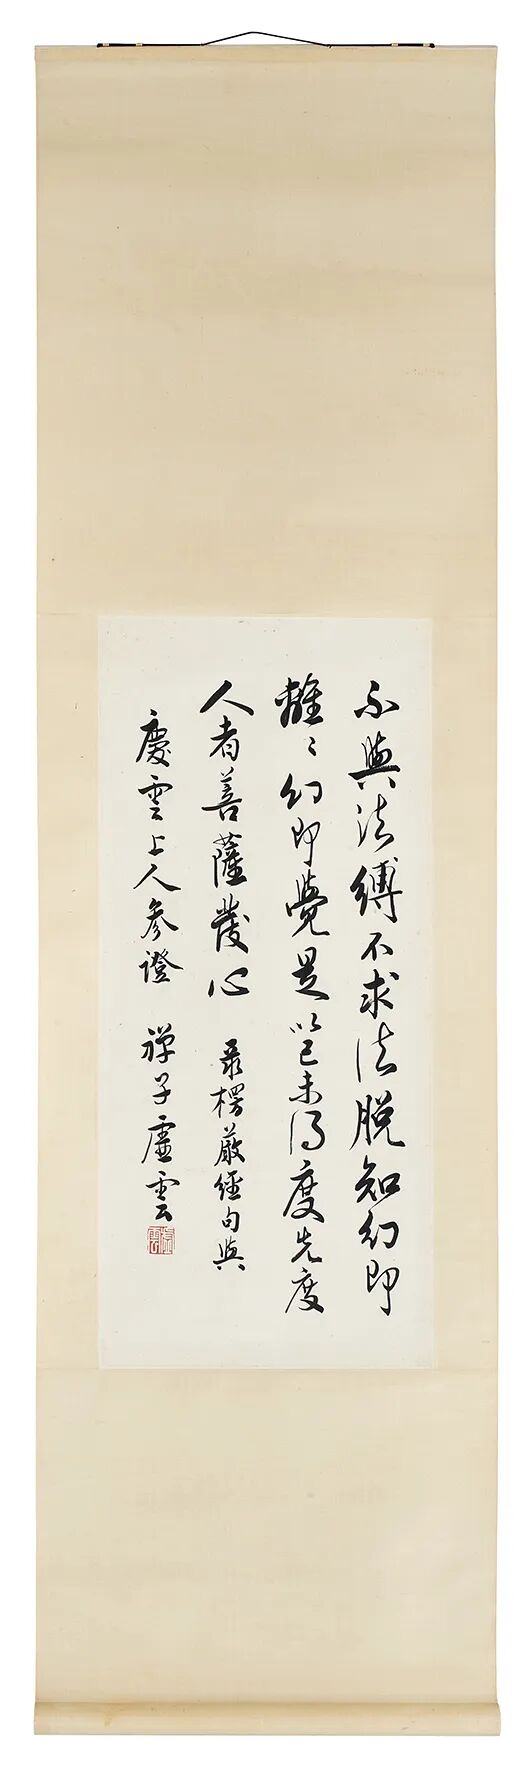 不與法縛不求法脫知幻即
離〻幻即覺是以己未得度先度
人者菩薩發心 录楞嚴經句與
慶雲上人參證 禪子虛雲
虛雲